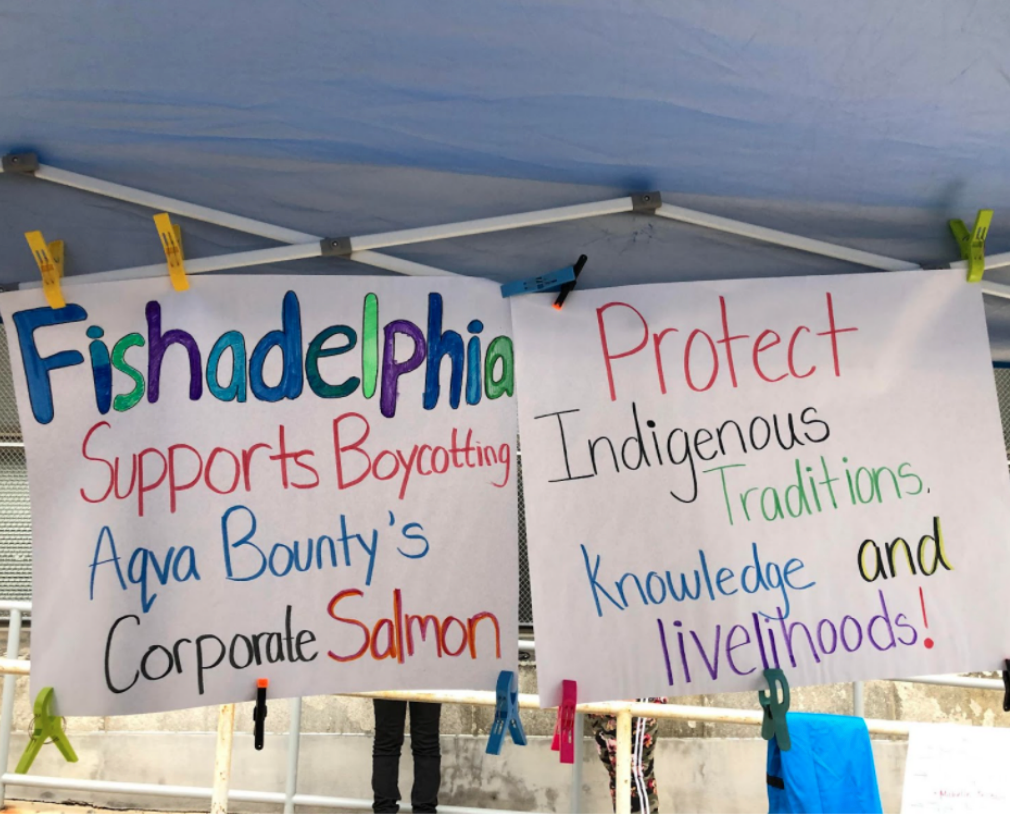 Fishadelphia
Supports Boycotting
Aqva Bounty's
Corporate Salmon
Protect
Indigenous
Traditions.
Knowledge and
livelihoods!